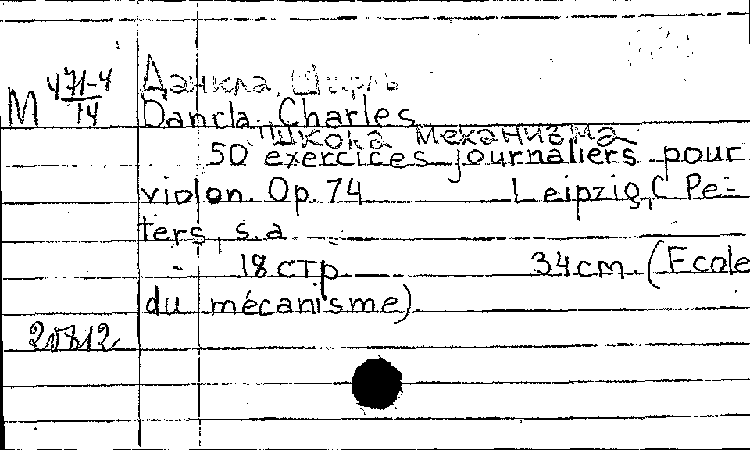 М 471-4/14
Данкла, Шарль
Dancla, Charles
"Школа механизма
50 exercices journaliers pour
violon. Op. 74 Leipzig, C Pe-
ters, s.a.
18 стр 34 cm. (Ecole
du mécanisme).